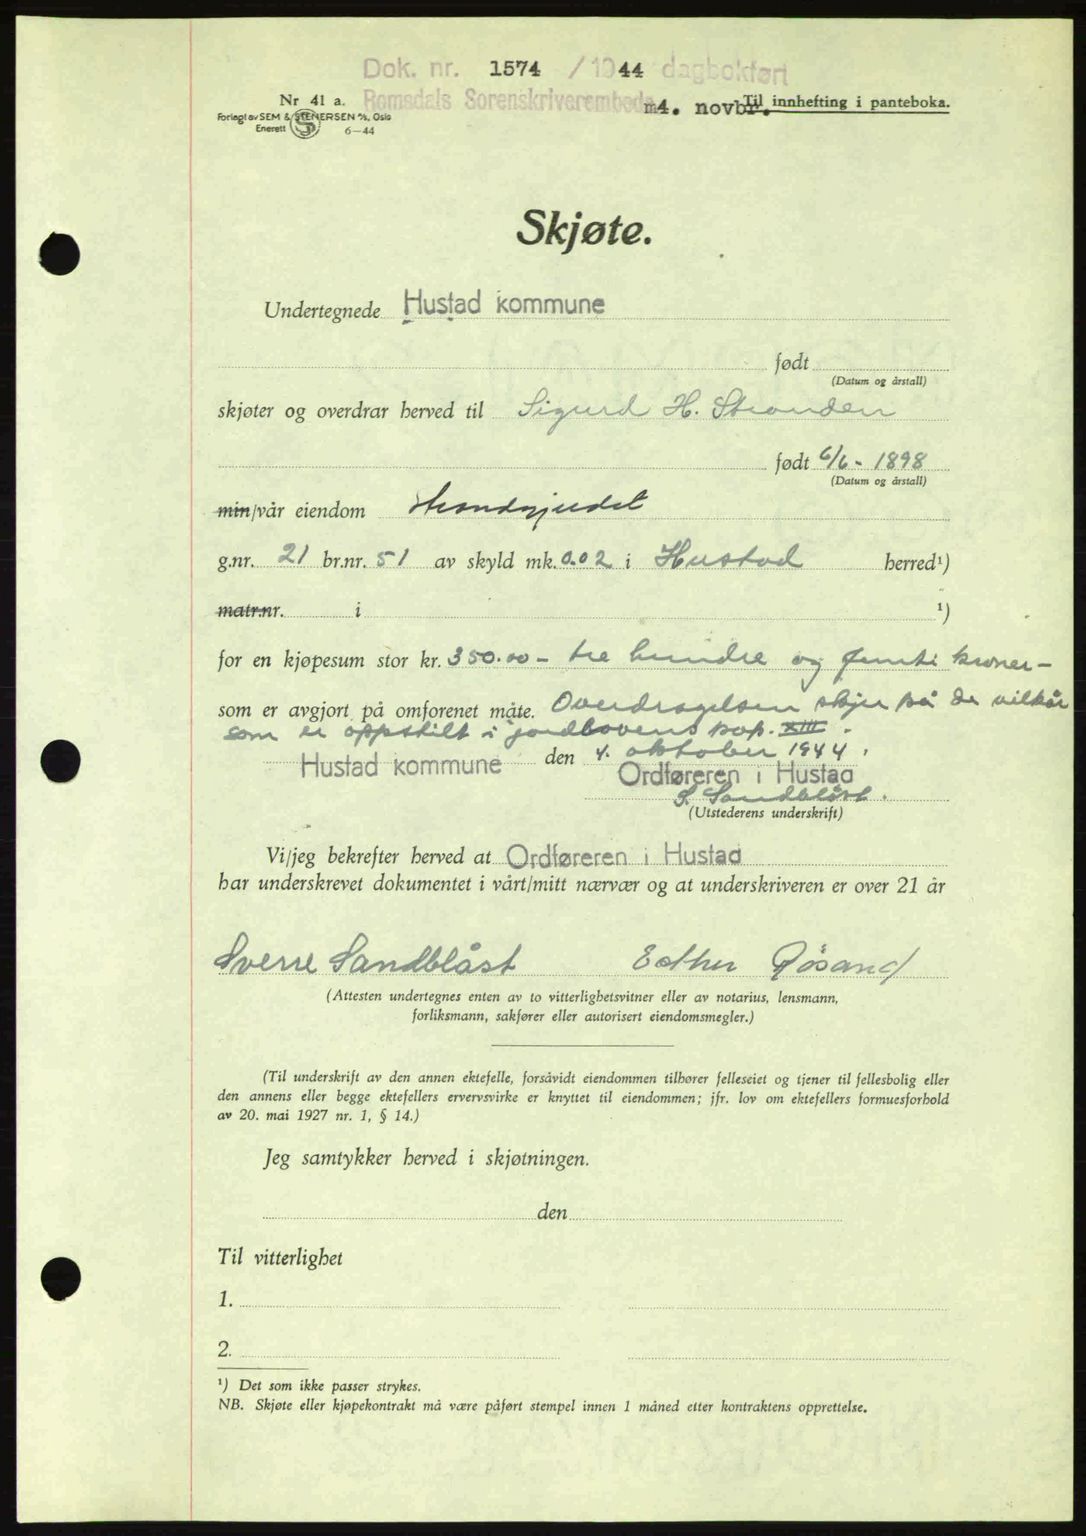 Dok. nr. 1574 / 1944 dagbokført
Nr 41 a. Romsdals Sorenskriverembede 4. novbr. Til innhefting i panteboka.
Forlagt av SEM & STENERSEN A/S, Oslo
Enerett S 6—44
Skjøte.
Undertegnede Hustad kommune
født
(Datum og årstall)
skjøter og overdrar herved til Sigurd H. Stranden
født 6/6 - 1898
(Datum og årstall)
min/vår eiendom
g.nr. 21 br.nr. 51 av skyld mk. 0.02 i Hustad herred¹)
matr.nr. i ¹)
for en kjøpesum stor kr. 350.00 - tre hundre og femti kroner -
som er avgjort på omforenet måte. Overdragelsen skjer på de vilkår
som er oppstilt i jordlovens kap. XIII.
Hustad kommune den 4. oktober 1944.
Ordføreren i Hustad
S. Sandblåst.
(Utstederens underskrift)
Vi/jeg bekrefter herved at Ordføreren i Hustad
har underskrevet dokumentet i vårt/mitt nærvær og at underskriveren er over 21 år
Sverre Sandblåst Esther Røsand
(Attesten undertegnes enten av to vitterlighetsvitner eller av notarius, lensmann,
forliksmann, sakfører eller autorisert eiendomsmegler.)
(Til underskrift av den annen ektefelle, forsåvidt eiendommen tilhører felleseiet og tjener til fellesbolig eller
den annens eller begge ektefellers ervervsvirke er knyttet til eiendommen; jfr. lov om ektefellers formuesforhold
av 20. mai 1927 nr. 1, § 14.)
Jeg samtykker herved i skjøtningen.
den
Til vitterlighet
1.
2.
¹) Det som ikke passer strykes.
NB. Skjøte eller kjøpekontrakt må være påført stempel innen 1 måned etter kontraktens opprettelse.